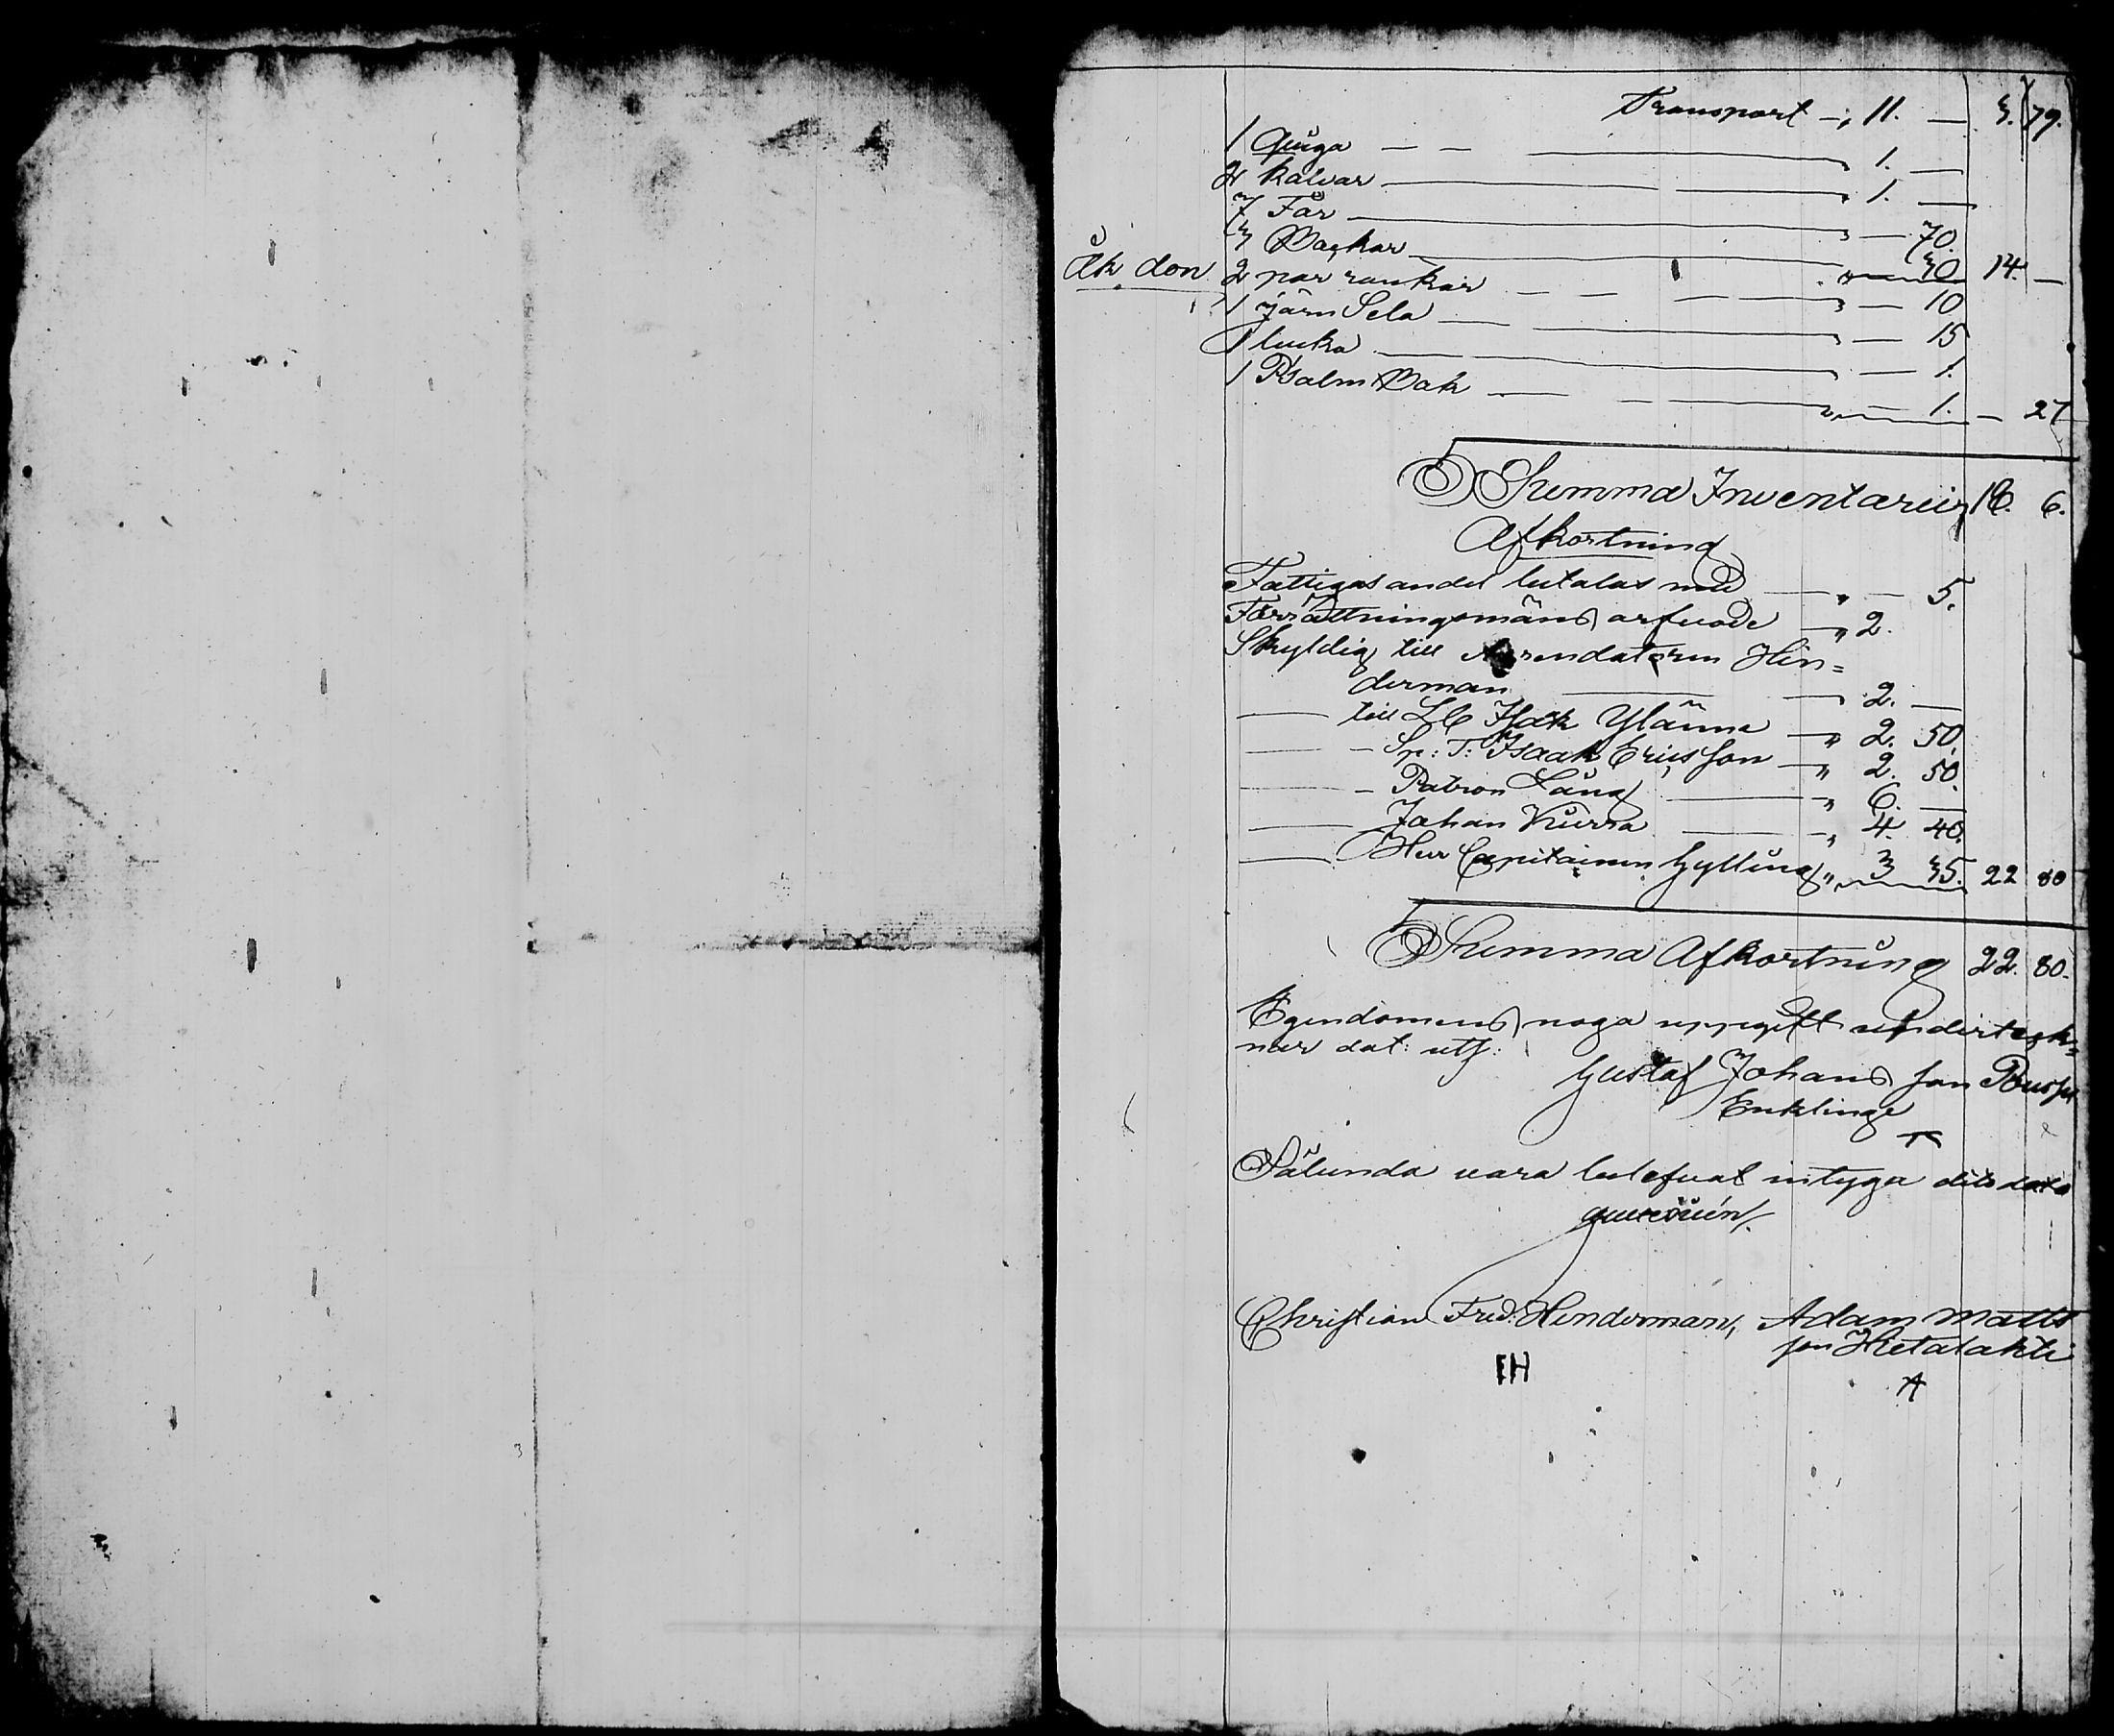 Transport — „ 11. — 3. 79.
1 Quiga — — „ 1. —
2 kalvar — „ 1. —
7 Får — „ — 70.
3 Baggar — „ — 30 14. —
Åk don 2 par rankar — „ — 10
1 järn Sela — „ — 15
1 lucka — „ — 1.
1 Psalm Bok — „ — 1. — 27
Summa Inventarium 18. 6.
Afkortning
Fattigas andel betalas med — „ — 5.
Förrättningsmäns arfvode — „ 2.
Skyldig till Arrendatorn Hin=
derman — „ 2. —
— till Isak Ylänne — „ 2. 50.
— – Sp: T: Isaak Ericsson — „ 2. 50.
— – Patron Lång — „ 6. —
— Johan Kurra — „ 4. 40.
— Herr Capitainen Gylling „ 3 35. 22 80
Summa Afkortning 22. 80.
Egendomens noga uppgift underteck=
nar dat: utf:
Gustaf Johans son
Enklinge
Sålunda vara befunt intyga dito dato
Christian Fred: Hinderman, Adam Matts
son Hietalahti
IH A